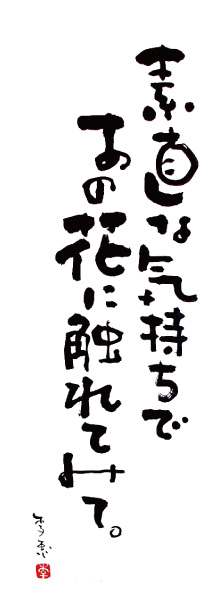 素直な気持ちで
あの花に触れてみて。